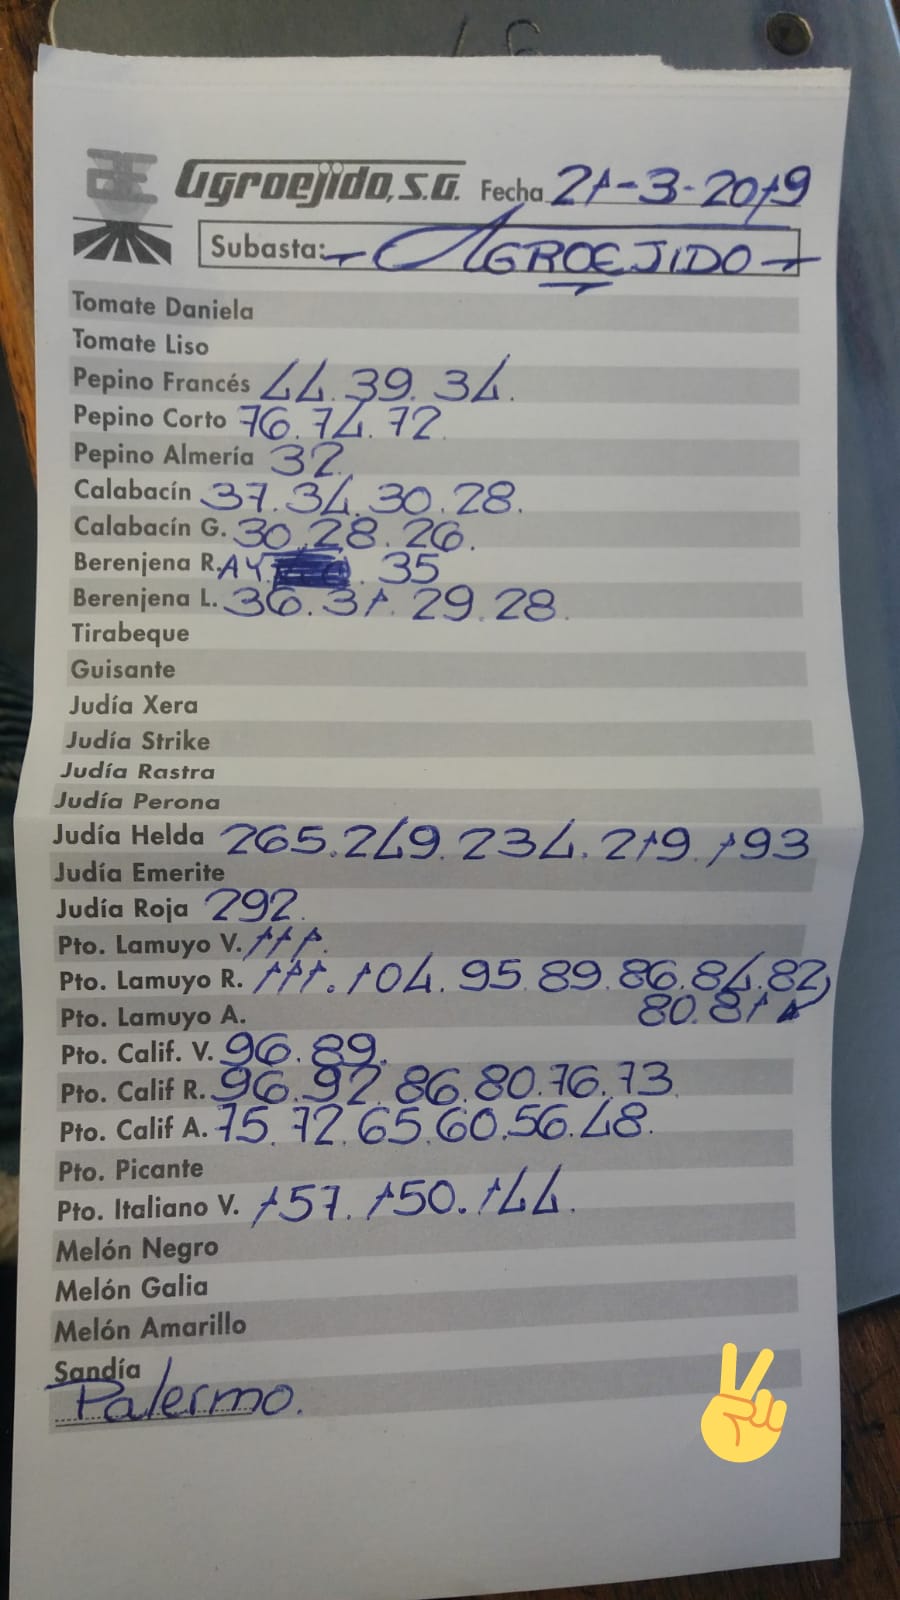 16
Agroejido, S.A. Fecha 21-3-2019
Subasta: - AGROEJIDO -
Tomate Daniela
Tomate Liso
Pepino Francés 44. 39. 34.
Pepino Corto 76. 74. 72
Pepino Almería 32.
Calabacín 37. 34. 30. 28.
Calabacín G. 30. 28. 26.
Berenjena R. AY. 35
Berenjena L. 36. 31. 29. 28.
Tirabeque
Guisante
Judía Xera
Judía Strike
Judía Rastra
Judía Perona
Judía Helda 265. 249. 234. 219. 193
Judía Emerite
Judía Roja 292.
Pto. Lamuyo V. 111.
Pto. Lamuyo R. 111. 104. 95. 89. 86. 84. 82
Pto. Lamuyo A. 80. 81
Pto. Calif. V. 96. 89.
Pto. Calif R. 96. 92. 86. 80. 76. 73.
Pto. Calif A. 75. 72. 65. 60. 56. 48.
Pto. Picante
Pto. Italiano V. 157. 150. 144.
Melón Negro
Melón Galia
Melón Amarillo
Sandía
Palermo.